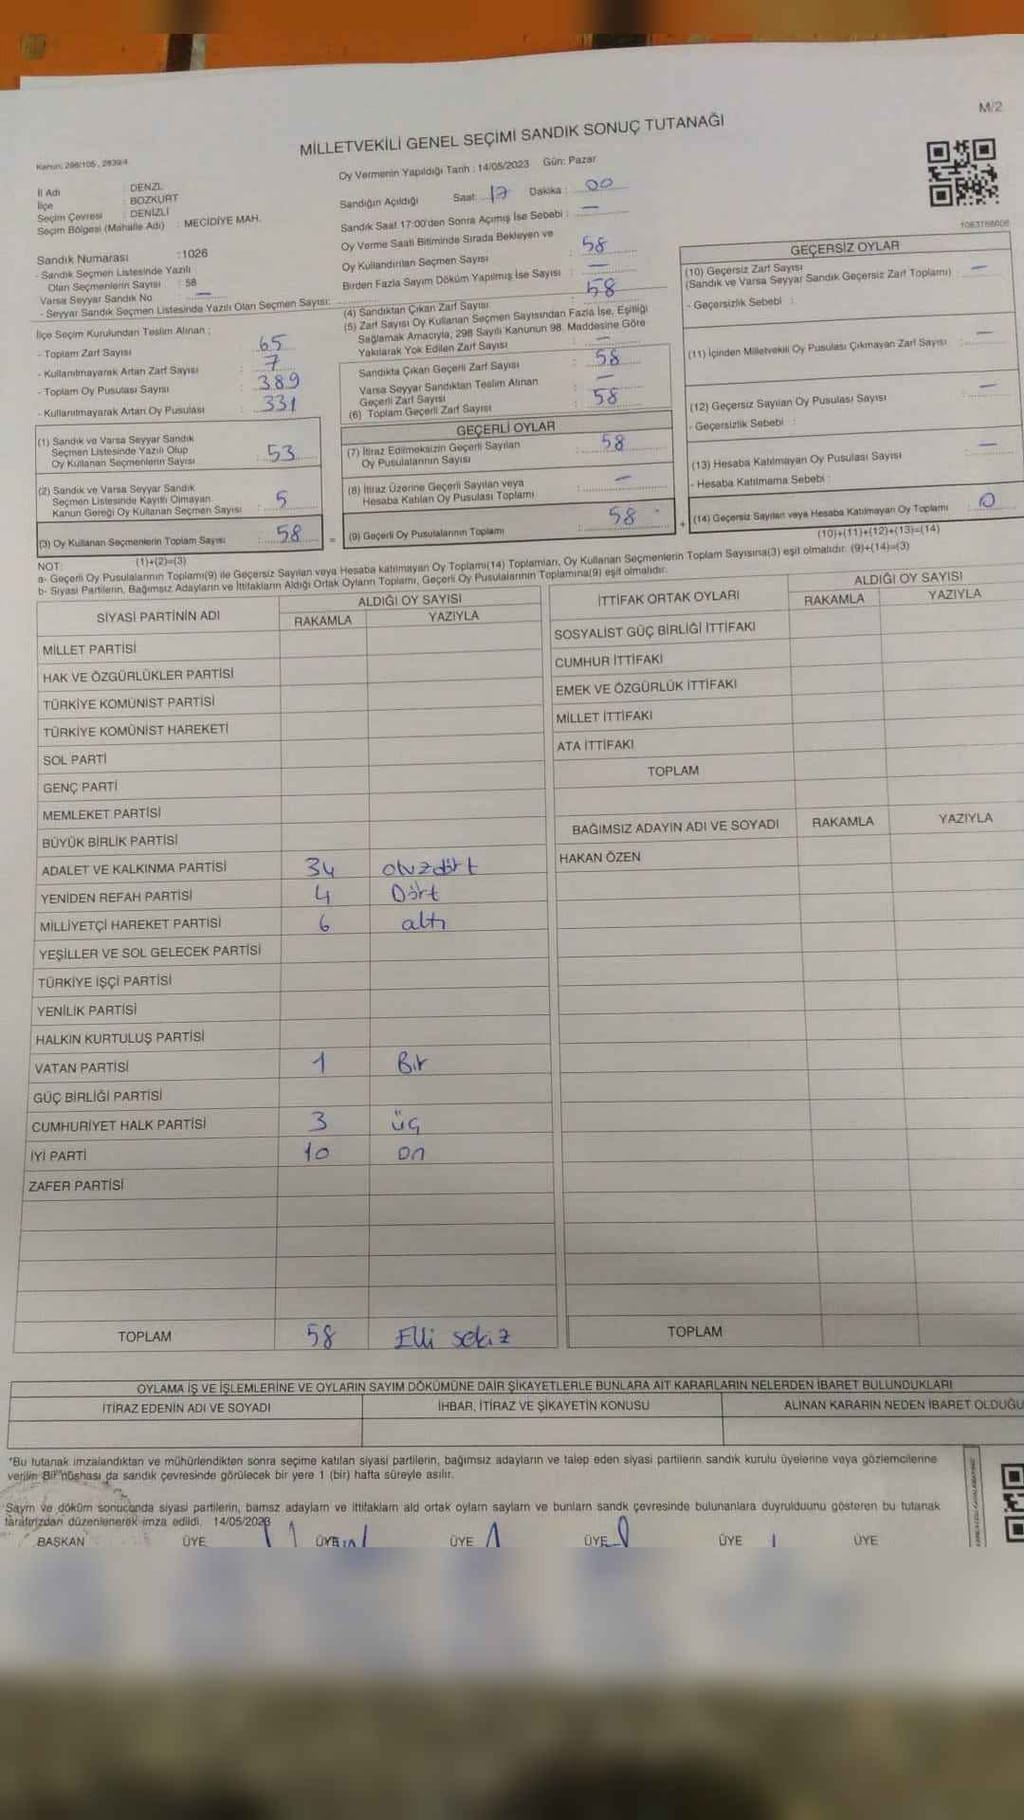 M/2
MİLLETVEKİLİ GENEL SEÇİMİ SANDIK SONUÇ TUTANAĞI
Kanun: 298/105, 2839/4
Oy Vermenin Yapıldığı Tarih : 14/05/2023 Gün: Pazar
İl Adı : DENZL
İlçe : BOZKURT
Seçim Çevresi : DENİZLİ
Seçim Bölgesi (Mahalle Adı) : MECİDİYE MAH.
Sandık Numarası :1026
- Sandık Seçmen Listesinde Yazılı
Olan Seçmenlerin Sayısı : 58
Varsa Seyyar Sandık No : —
- Seyyar Sandık Seçmen Listesinde Yazılı Olan Seçmen Sayısı:
İlçe Seçim Kurulundan Teslim Alınan :
- Toplam Zarf Sayısı : 65
- Kullanılmayarak Artan Zarf Sayısı : 7
- Toplam Oy Pusulası Sayısı : 389
- Kullanılmayarak Artan Oy Pusulası : 331
(1) Sandık ve Varsa Seyyar Sandık
Seçmen Listesinde Yazılı Olup
Oy Kullanan Seçmenlerin Sayısı : 53
(2) Sandık ve Varsa Seyyar Sandık
Seçmen Listesinde Kayıtlı Olmayan
Kanun Gereği Oy Kullanan Seçmen Sayısı : 5
(3) Oy Kullanan Seçmenlerin Toplam Sayısı : 58
(1)+(2)=(3)
Sandığın Açıldığı Saat: 17 Dakika : 00
Sandık Saat 17:00'den Sonra Açımış İse Sebebi : —
Oy Verme Saati Bitiminde Sırada Bekleyen ve
Oy Kullandırılan Seçmen Sayısı : 58
Birden Fazla Sayım Döküm Yapılmış İse Sayısı : —
(4) Sandıktan Çıkan Zarf Sayısı : 58
(5) Zarf Sayısı Oy Kullanan Seçmen Sayısından Fazla İse, Eşitliği
Sağlamak Amacıyla, 298 Sayılı Kanunun 98. Maddesine Göre
Yakılarak Yok Edilen Zarf Sayısı : —
Sandıkta Çıkan Geçerli Zarf Sayısı : 58
Varsa Seyyar Sandıktan Teslim Alınan
Geçerli Zarf Sayısı : —
(6) Toplam Geçerli Zarf Sayısı : 58
GEÇERLİ OYLAR
(7) İtiraz Edilmeksizin Geçerli Sayılan
Oy Pusulalarının Sayısı : 58
(8) İtiraz Üzerine Geçerli Sayılan veya
Hesaba Katılan Oy Pusulası Toplamı : —
= (9) Geçerli Oy Pusulalarının Toplamı : 58
1083788606
GEÇERSİZ OYLAR
(10) Geçersiz Zarf Sayısı : —
(Sandık ve Varsa Seyyar Sandık Geçersiz Zarf Toplamı)
- Geçersizlik Sebebi :
(11) İçinden Milletvekili Oy Pusulası Çıkmayan Zarf Sayısı : —
(12) Geçersiz Sayılan Oy Pusulası Sayısı : —
- Geçersizlik Sebebi :
(13) Hesaba Katılmayan Oy Pusulası Sayısı : —
- Hesaba Katılmama Sebebi :
+ (14) Geçersiz Sayılan veya Hesaba Katılmayan Oy Toplamı : 0
(10)+(11)+(12)+(13)=(14)
NOT:
a- Geçerli Oy Pusulalarının Toplamı(9) ile Geçersiz Sayılan veya Hesaba katılmayan Oy Toplamı(14) Toplamları, Oy Kullanan Seçmenlerin Toplam Sayısına(3) eşit olmalıdır. (9)+(14)=(3)
b- Siyasi Partilerin, Bağımsız Adayların ve İttifakların Aldığı Ortak Oyların Toplamı, Geçerli Oy Pusulalarının Toplamına(9) eşit olmalıdır.
SİYASİ PARTİNİN ADI ALDIĞI OY SAYISI
RAKAMLA YAZIYLA
MİLLET PARTİSİ
HAK VE ÖZGÜRLÜKLER PARTİSİ
TÜRKİYE KOMÜNİST PARTİSİ
TÜRKİYE KOMÜNİST HAREKETİ
SOL PARTİ
GENÇ PARTİ
MEMLEKET PARTİSİ
BÜYÜK BİRLİK PARTİSİ
ADALET VE KALKINMA PARTİSİ 34 otuzdört
YENİDEN REFAH PARTİSİ 4 Dört
MİLLİYETÇİ HAREKET PARTİSİ 6 altı
YEŞİLLER VE SOL GELECEK PARTİSİ
TÜRKİYE İŞÇİ PARTİSİ
YENİLİK PARTİSİ
HALKIN KURTULUŞ PARTİSİ
VATAN PARTİSİ 1 Bir
GÜÇ BİRLİĞİ PARTİSİ
CUMHURİYET HALK PARTİSİ 3 üç
İYİ PARTİ 10 on
ZAFER PARTİSİ
TOPLAM 58 Elli sekiz
İTTİFAK ORTAK OYLARI ALDIĞI OY SAYISI
RAKAMLA YAZIYLA
SOSYALİST GÜÇ BİRLİĞİ İTTİFAKI
CUMHUR İTTİFAKI
EMEK VE ÖZGÜRLÜK İTTİFAKI
MİLLET İTTİFAKI
ATA İTTİFAKI
TOPLAM
BAĞIMSIZ ADAYIN ADI VE SOYADI RAKAMLA YAZIYLA
HAKAN ÖZEN
TOPLAM
OYLAMA İŞ VE İŞLEMLERİNE VE OYLARIN SAYIM DÖKÜMÜNE DAİR ŞİKAYETLERLE BUNLARA AİT KARARLARIN NELERDEN İBARET BULUNDUKLARI
İTİRAZ EDENİN ADI VE SOYADI İHBAR, İTİRAZ VE ŞİKAYETİN KONUSU ALINAN KARARIN NEDEN İBARET OLDUĞU
*Bu tutanak imzalandıktan ve mühürlendikten sonra seçime katılan siyasi partilerin, bağımsız adayların ve talep eden siyasi partilerin sandık kurulu üyelerine veya gözlemcilerine
verilir. Bir nüshası da sandık çevresinde görülecek bir yere 1 (bir) hafta süreyle asılır.
Saym ve döküm sonucunda siyasi partilerin, bamsz adaylarn ve ittifaklarn ald ortak oylarn saylarn ve bunlarn sandk çevresinde bulunanlara duyrulduunu gösteren bu tutanak
tarafmzdan düzenlenerek imza edildi. 14/05/2023
BAŞKAN ÜYE ÜYE ÜYE ÜYE ÜYE ÜYE